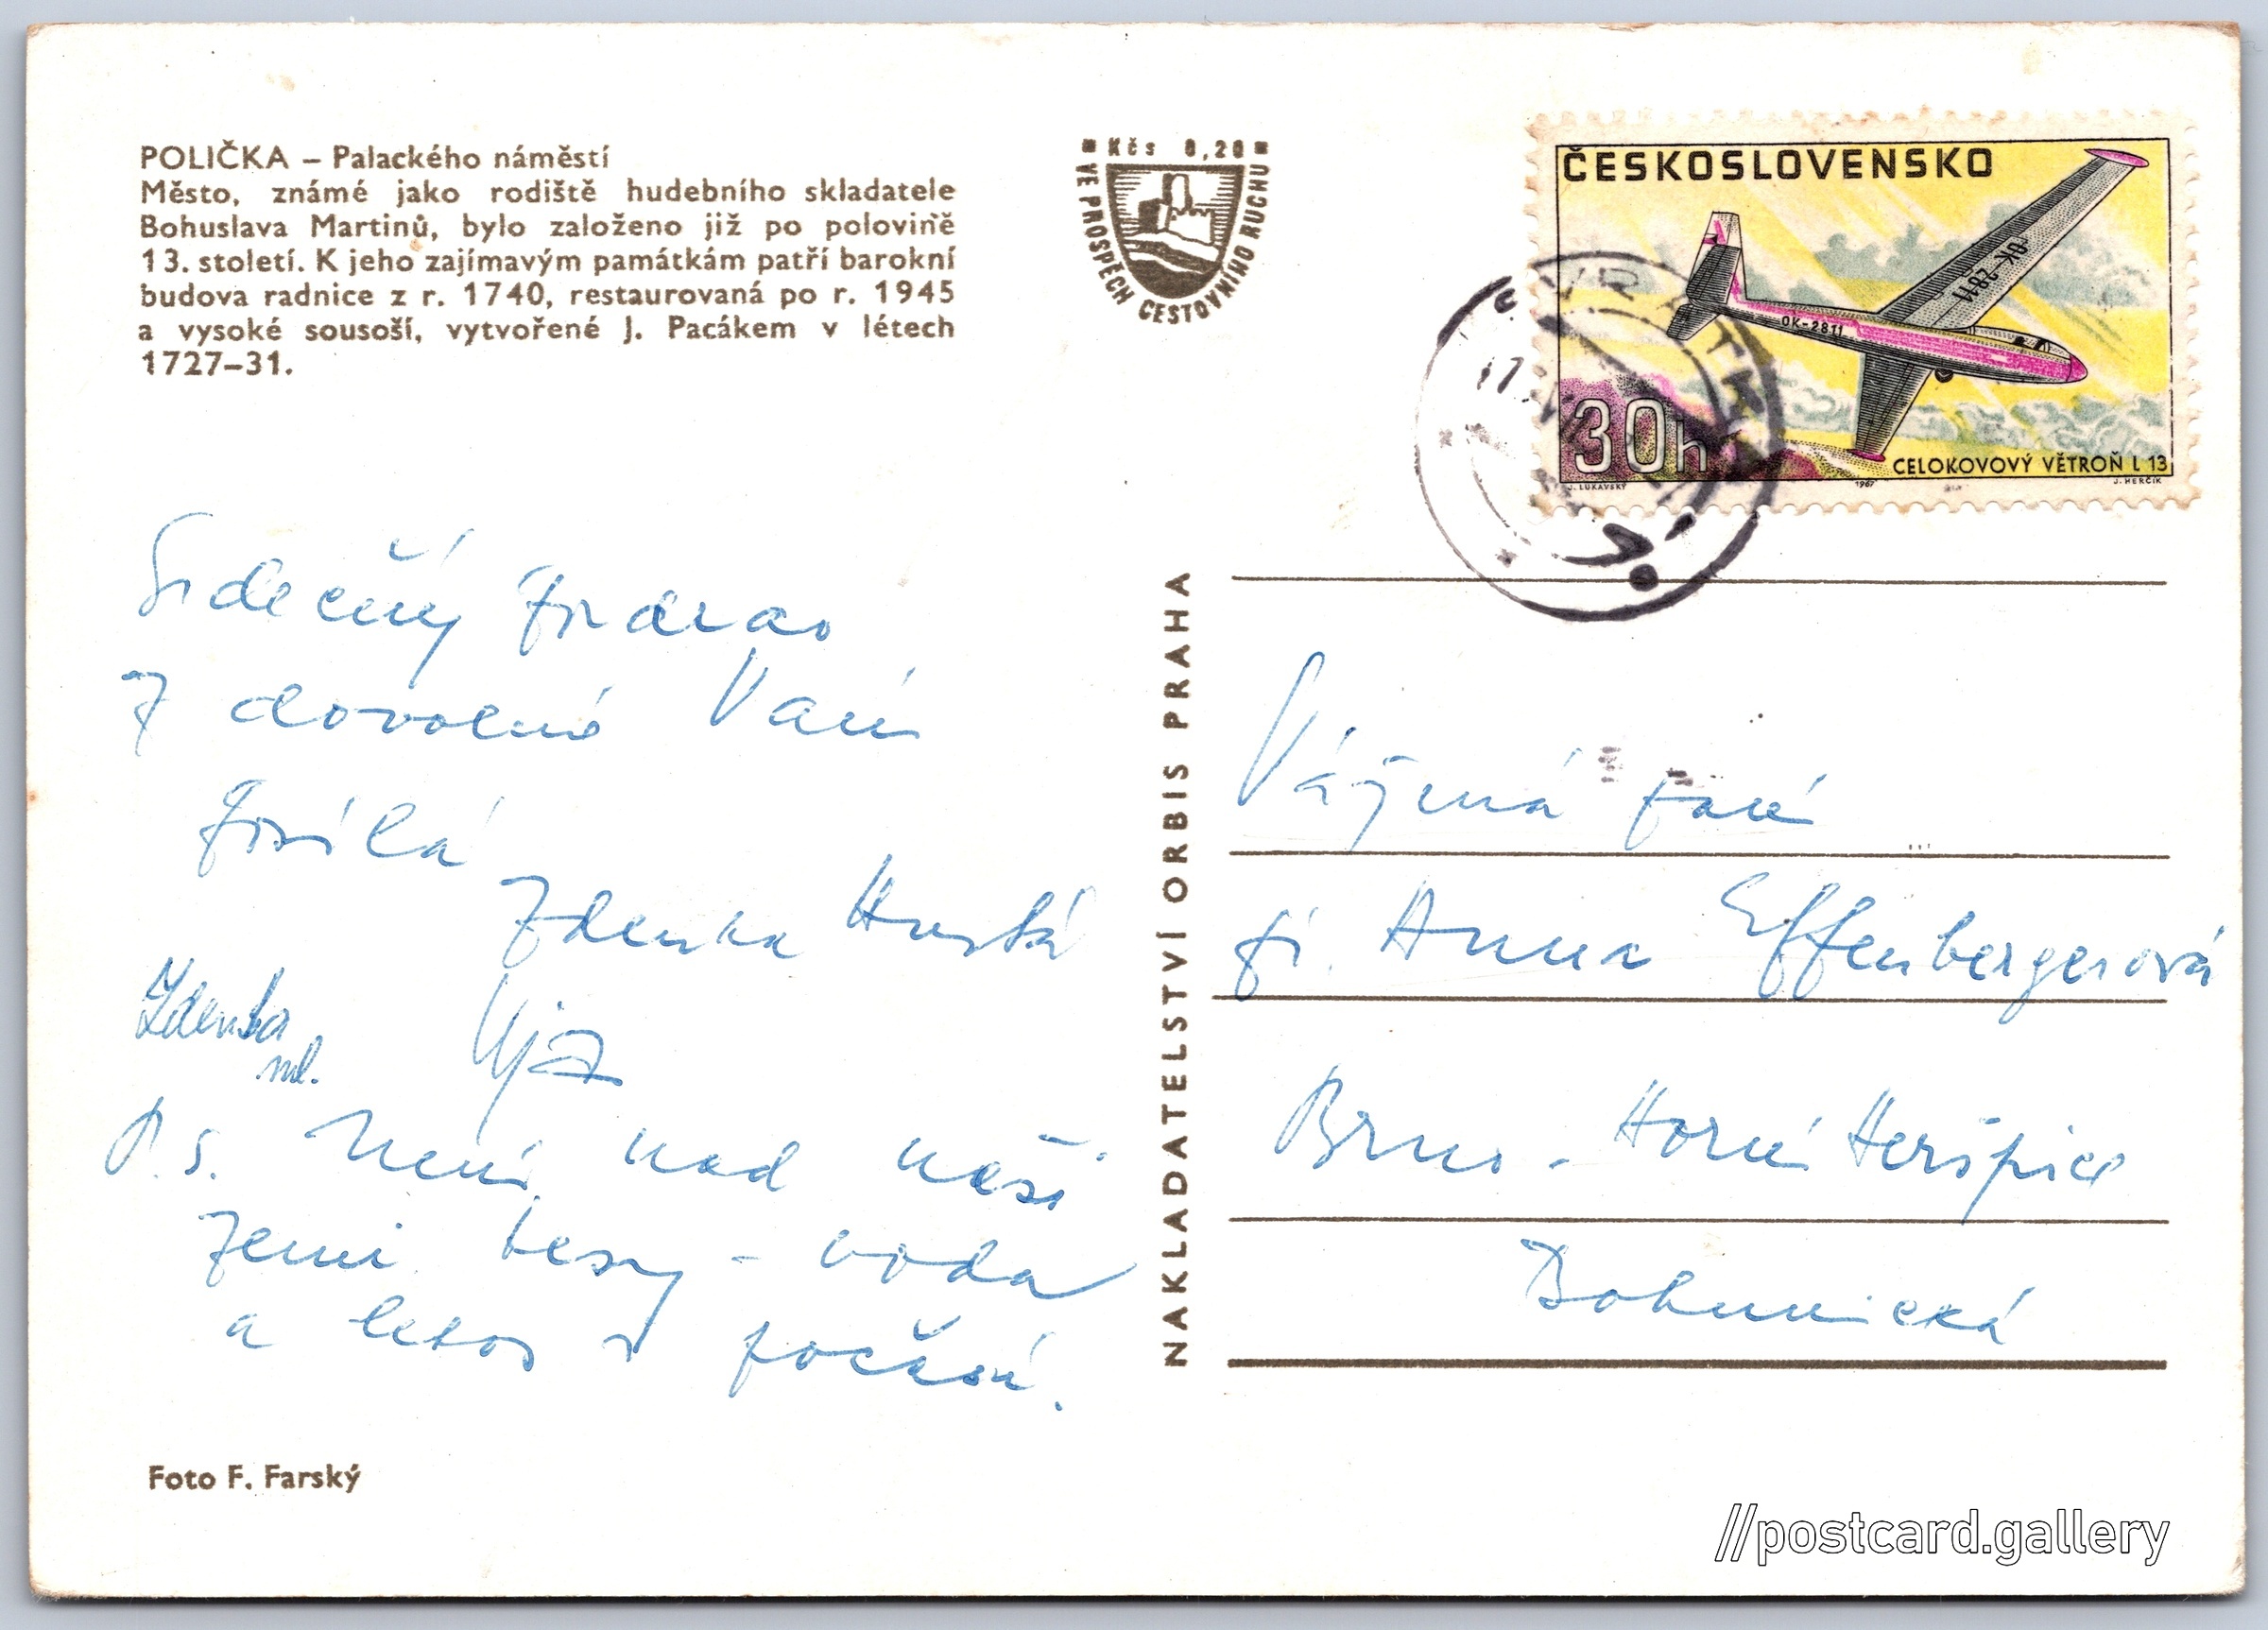 POLIČKA – Palackého náměstí
Město, známé jako rodiště hudebního skladatele
Bohuslava Martinů, bylo založeno již po polovině
13. století. K jeho zajímavým památkám patří barokní
budova radnice z r. 1740, restaurovaná po r. 1945
a vysoké sousoší, vytvořené J. Pacákem v létech
1727–31.
Kčs 0,20
VE PROSPĚCH CESTOVNÍHO RUCHU
ČESKOSLOVENSKO
OK-2811
OK-2811
30h
CELOKOVOVÝ VĚTROŇ L 13
J. LUKAVSKÝ 1967 J. HERČÍK
Srdečný pozdrav
z dovolené Vám
posílá
Zdenka
Zdenka
ml.
P.S. Není nad naši
zemi – voda
a letos i počasí.
Foto F. Farský
NAKLADATELSTVÍ ORBIS PRAHA
Vážená paní
pí. Anna Effenbergerová
Brno - Horní Heršpice
Bohunická
//postcard.gallery